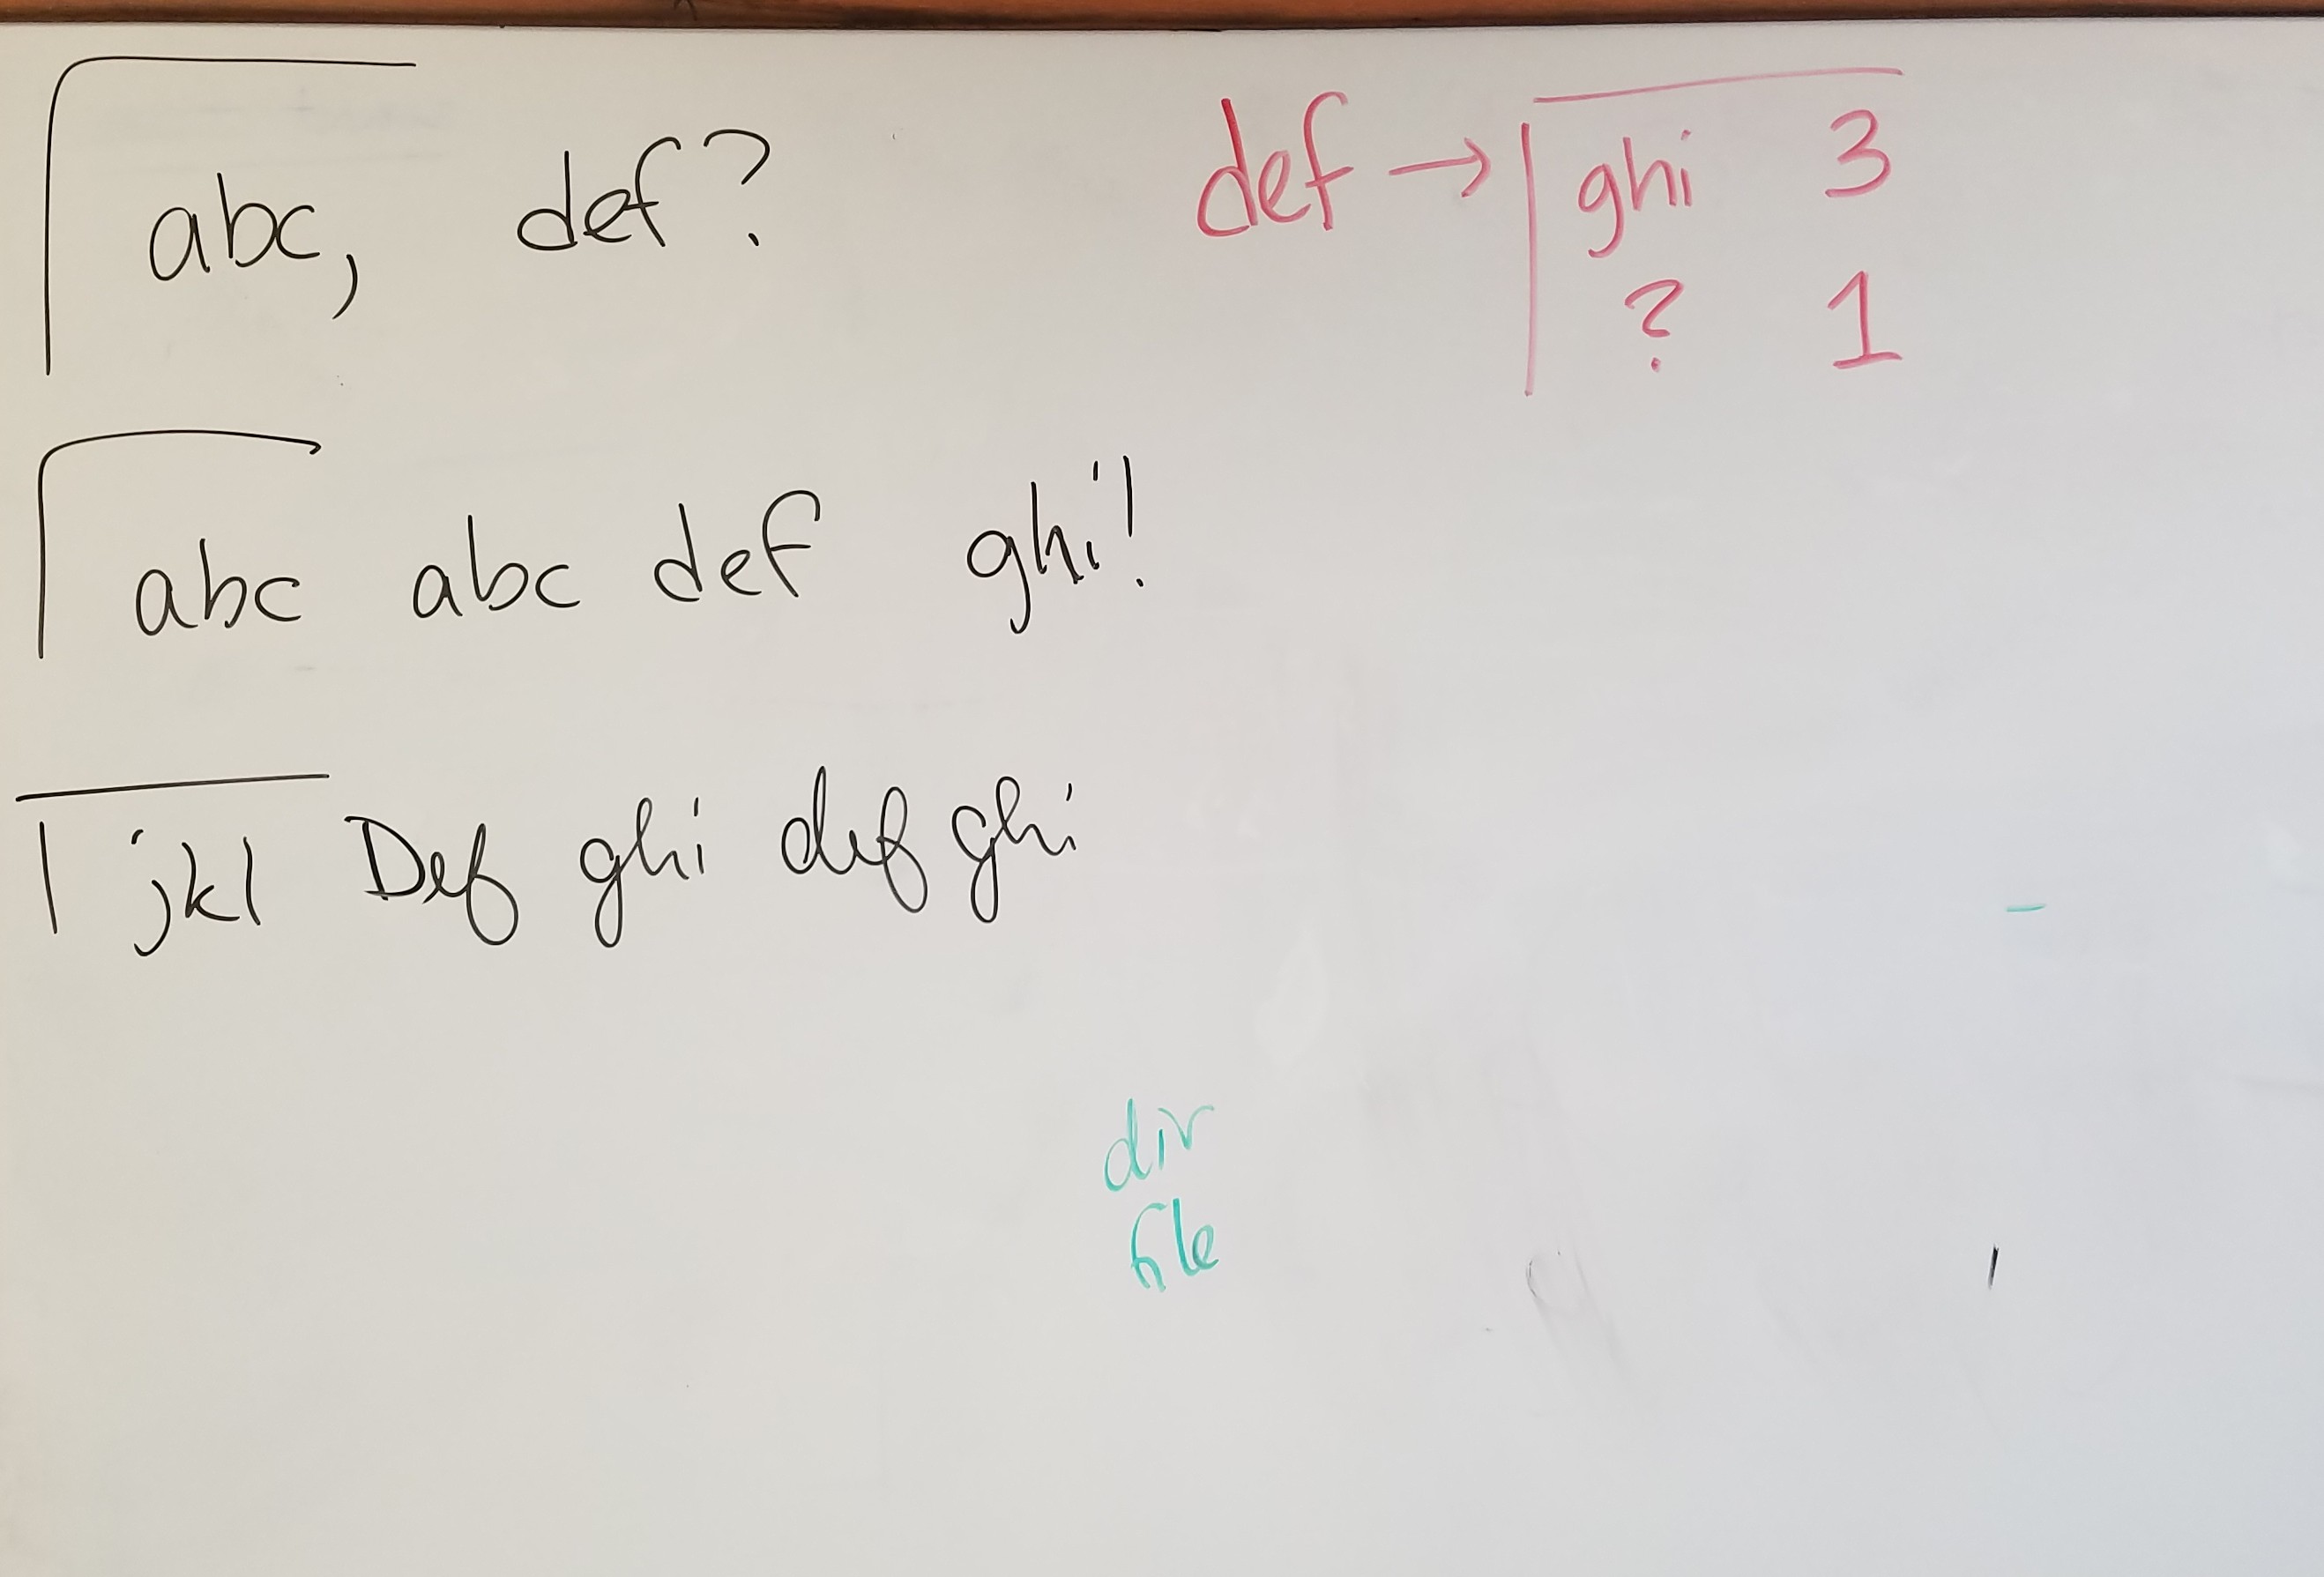 abc, def?
abc abc def ghi!
jkl Def ghi def ghi
def → ghi 3
? 1
dir
file